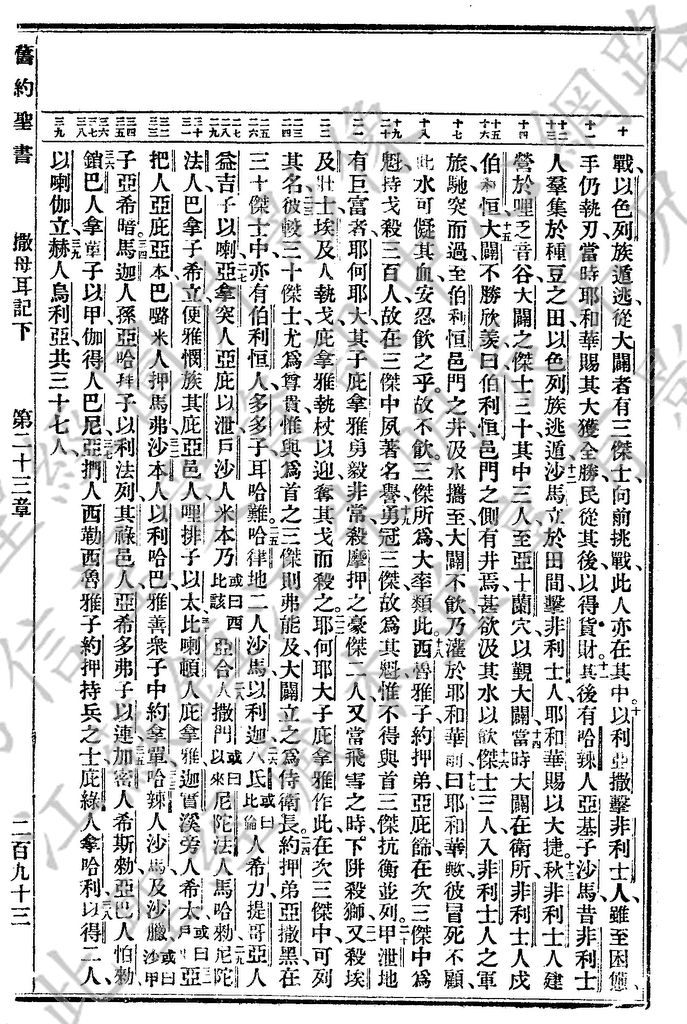 舊約聖書 撒母耳記下 第二十三章 二百九十三
戰以色列族遁逃從大闢者有三傑士向前挑戰此人亦在其中十以利亞撒擊非利士人雖至困憊
手仍執刃當時耶和華賜其大獲全勝民從其後以得貨財十一其後有哈辣人亞基子沙馬昔非利士
人羣集於種豆之田以色列族遁逃十二沙馬立於田間擊非利士人耶和華賜以大捷十三秋非利士人建
營於哩乏音谷大闢之傑士三十其中三人至亞十蘭穴以觀大闢十四當時大闢在衛所非利士人戍
伯利恒十五大闢不勝欣羨曰伯利恒邑門之側有井焉甚欲及其水以飲十六傑士三人入非利士人之軍
旅馳突而過至伯利恒邑門之井汲水攜至大闢不飲乃灌於耶和華前十七曰耶和華歟彼冒死不顧
此水可儗其血安忍飲之乎故不飲三傑所為大率類此十八西魯雅子約押弟亞庇篩在次三傑中為
魁持戈殺三百人故在三傑中夙著名譽十九勇冠三傑故為其魁惟不得與首三傑抗衡並列二十甲泄地
有巨富者耶何耶大其子庇拿雅勇毅非常殺摩押之豪傑二人又當飛雪之時下阱殺獅二一又殺埃
及壯士埃及人執戈庇拿雅執杖以迎奪其戈而殺之二二耶何耶大子庇拿雅作此在次三傑中可列
其名二三彼較三十傑士尤為尊貴惟與為首之三傑則弗能及大闢立之為侍衛長二四約押弟亞撒黑在
三十傑士中亦有伯利恒人多多子耳哈難二五哈律地二人沙馬以利迦二六八氏或曰比倫人希力提哥亞人
益吉子以喇二七亞拿突人亞庇以泄戶沙人米本乃或曰西比該二八亞合人撒門或曰以來尼陀法人馬哈勑二九尼陀
法人巴拿子希立便雅憫族其庇亞邑人哩排子以太三十比喇頓人庇拿雅迦實溪旁人希太或曰戶三一亞
把人亞庇亞本巴嚕米人押馬弗三二沙本人以利哈巴雅善衆子中約拿單三三哈辣人沙馬及沙臘或曰沙甲
子亞希暗三四馬迦人孫亞哈拜子以利法列其祿邑人亞希多弗子以連三五加密人希斯勑亞巴人怕勑
三六鎖巴人拿單子以甲伽得人巴尼三七亞捫人西勒西魯雅子約押持兵之士庇綠人拿哈利三八以得二人
以喇伽立三九赫人烏利亞共三十七人